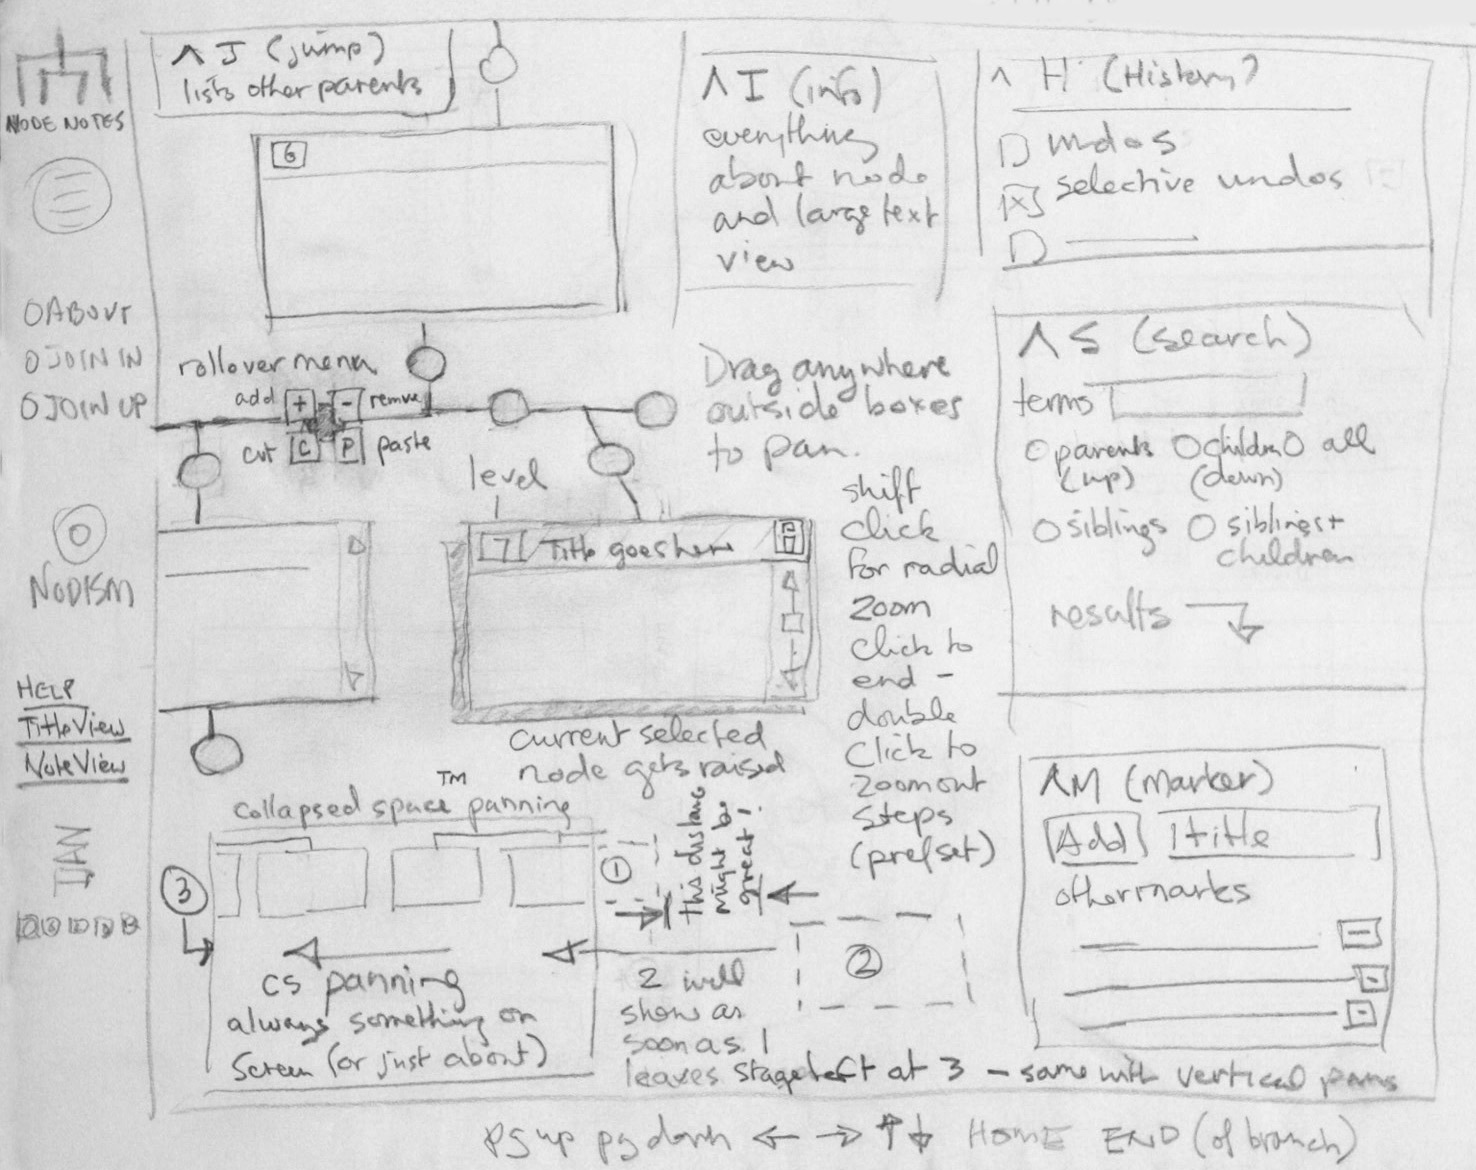 NODE NOTES
O ABOUT
O JOIN IN
O JOIN UP
NODISM
HELP
Title View
Note View
IAN
^ J (jump)
lists other parents
6
rollover menu
add + - remve
cut C P paste
level
7 Title goes here
current selected
node gets raised
^ I (info)
everything
about node
and large text
view
Drag anywhere
outside boxes
to pan.
shift
click
for radial
zoom
click to
end -
double
click to
zoom out
steps
(pref set)
^ H (History)
undos
selective undos
^ S (search)
terms
O parents O children O all
(up) (down)
O siblings O siblings +
children
results
^M (marker)
Add title
other marks
collapsed space™ panning
1
this distanc
might be
great!
3
2
cs panning
always something on
screen (or just about)
2 will
show as
soon as 1
leaves stage left at 3 - same with vertical pans
pg up pg down ← → ↑ ↓ HOME END (of branch)